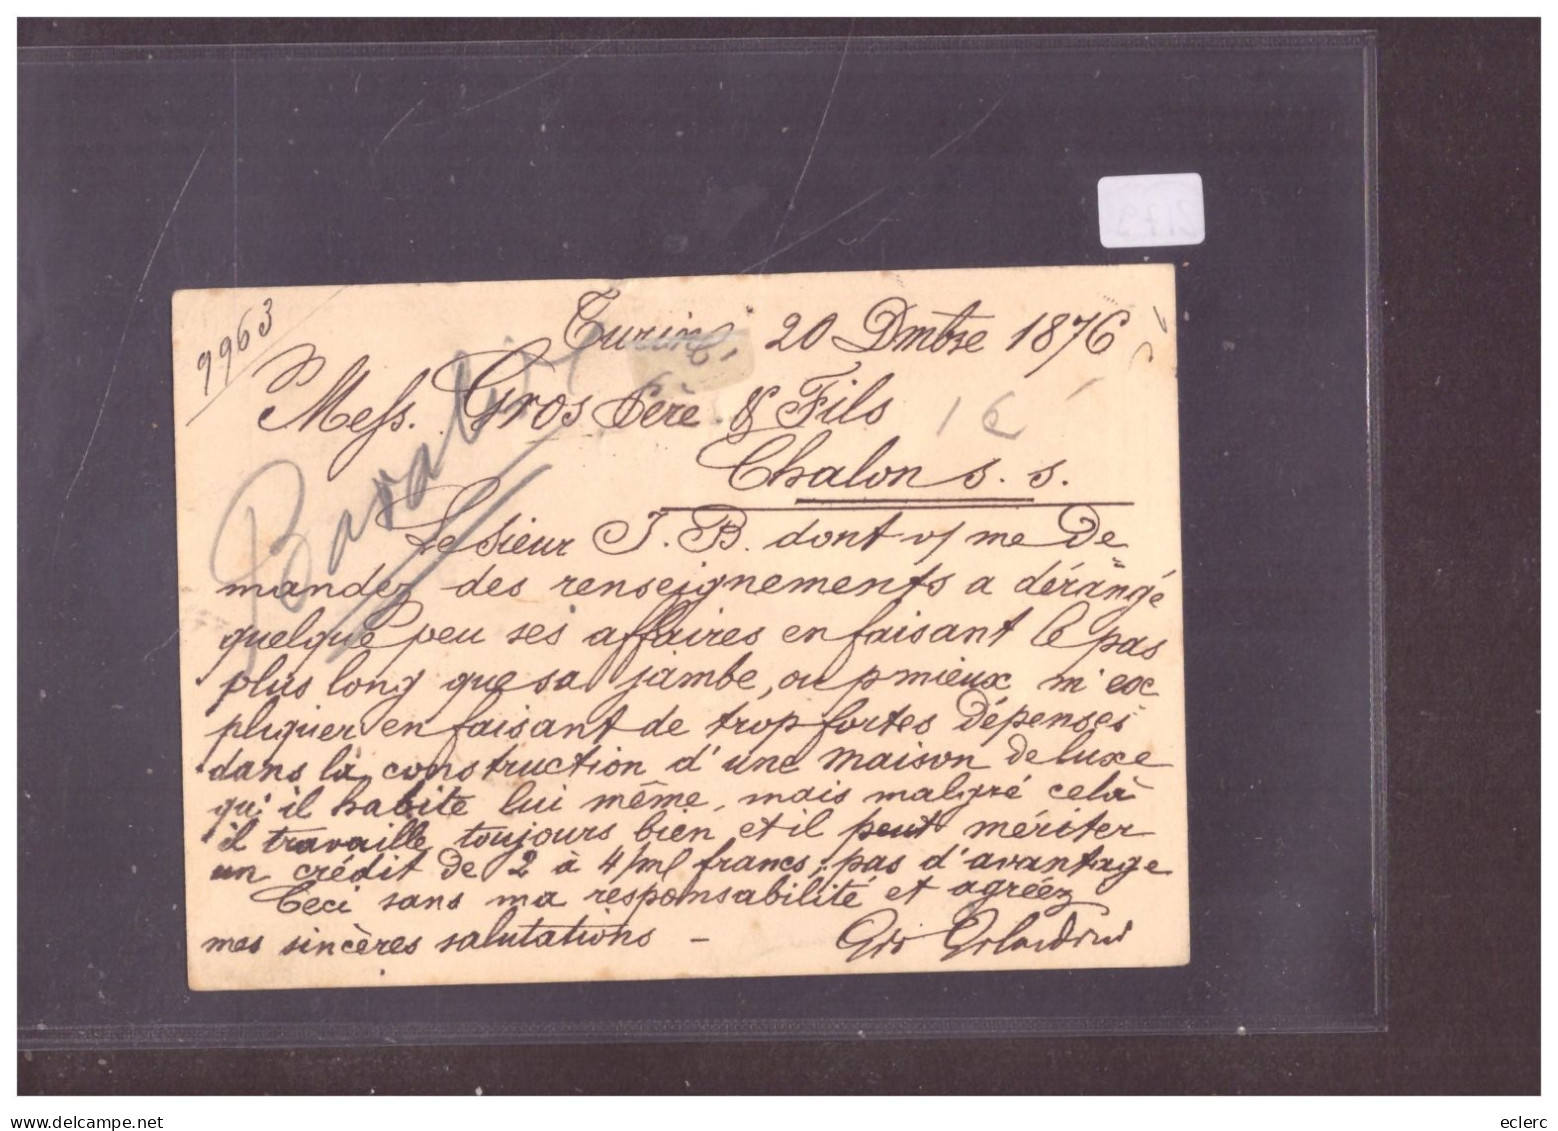 9963
Turin 20 Dmbre 1876
Mess. Gros Père & Fils
1 €
Chalon s. s.
Le sieur J. B. dont v/ me de
mandez des renseignements a dérangé
quelque peu ses affaires en faisant le pas
plus long que sa jambe, ou p mieux m'ex
pliquer en faisant de trop fortes dépenses
dans la construction d'une maison de luxe
qu'il habite lui même, mais malgré celà
il travaille toujours bien et il peut mériter
un crédit de 2 à 4/ml francs, pas d'avantage
Ceci sans ma responsabilité et agréez
mes sincères salutations -
2179
eclerc